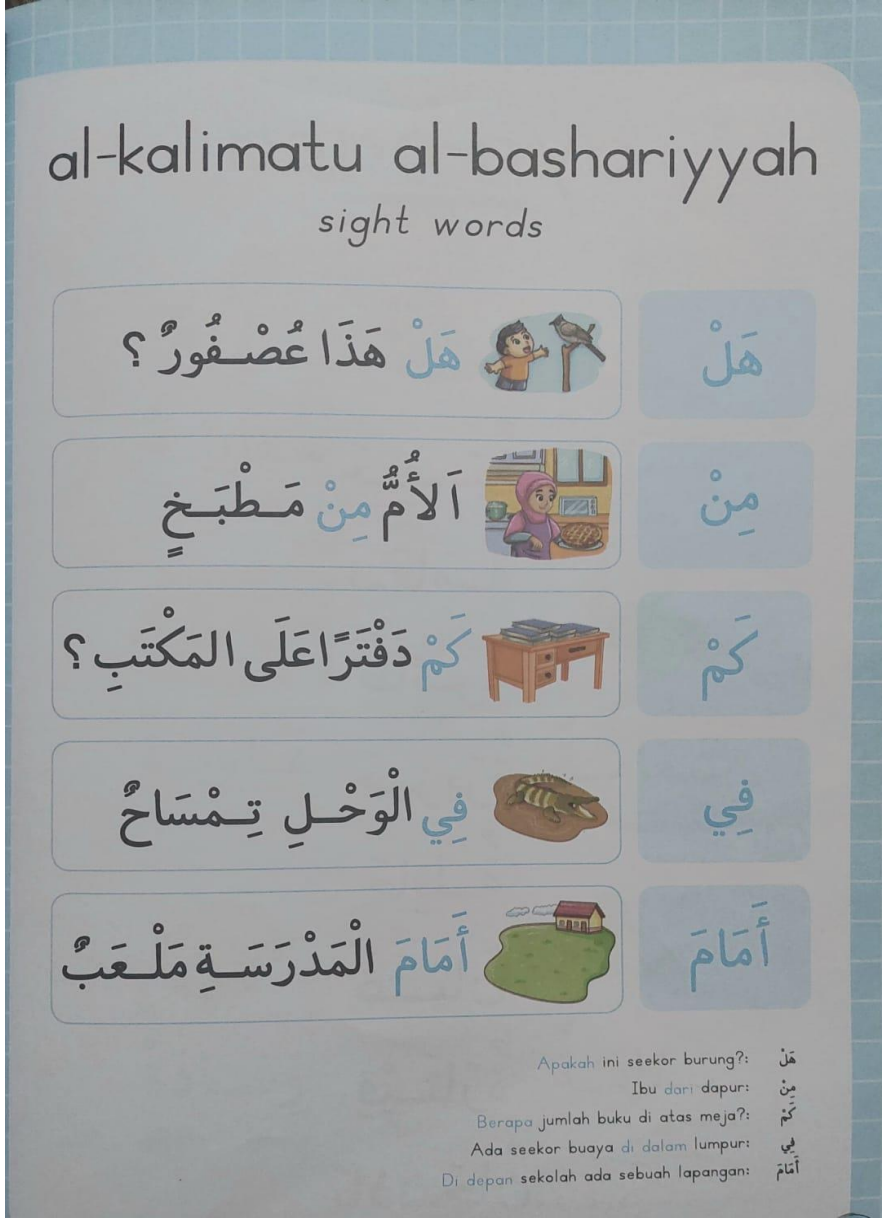 al-kalimatu al-bashariyyah
sight words
هَلْ
هَلْ هَذَا عُصْفُورٌ ؟
مِنْ
اَلأُمُّ مِنْ مَطْبَخٍ
كَمْ
كَمْ دَفْتَرًا عَلَى المَكْتَبِ ؟
فِي
فِي الْوَحْلِ تِمْسَاحٌ
أَمَامَ
أَمَامَ الْمَدْرَسَةِ مَلْعَبٌ
هَلْ Apakah ini seekor burung?:
مِنْ Ibu dari dapur:
كَمْ Berapa jumlah buku di atas meja?:
فِي Ada seekor buaya di dalam lumpur:
أَمَامَ Di depan sekolah ada sebuah lapangan: